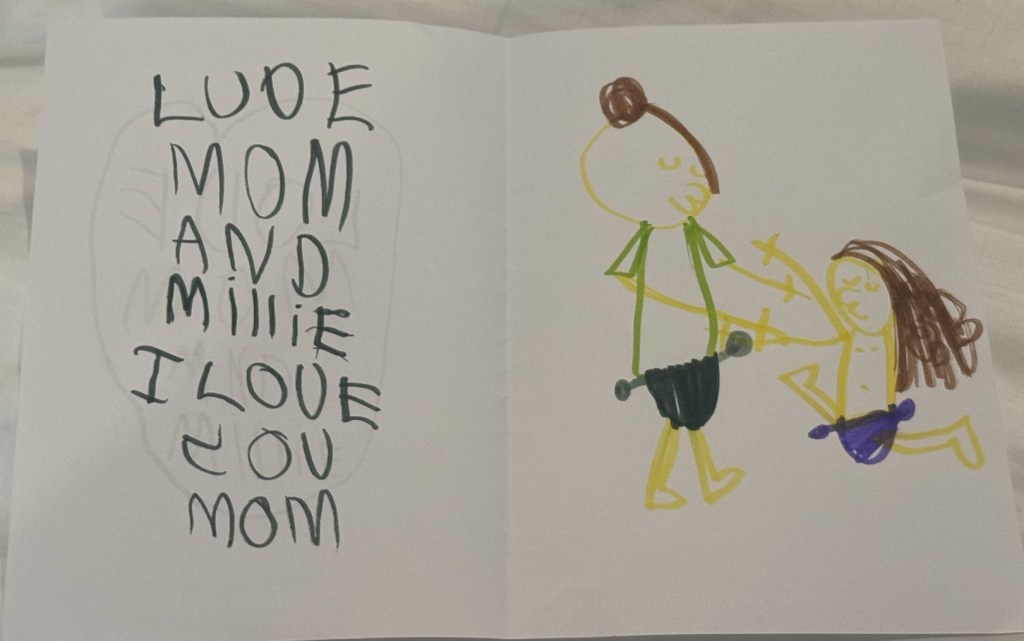 LUOE
MOM
AND
MilliE
I LOUE
YOU
MOM